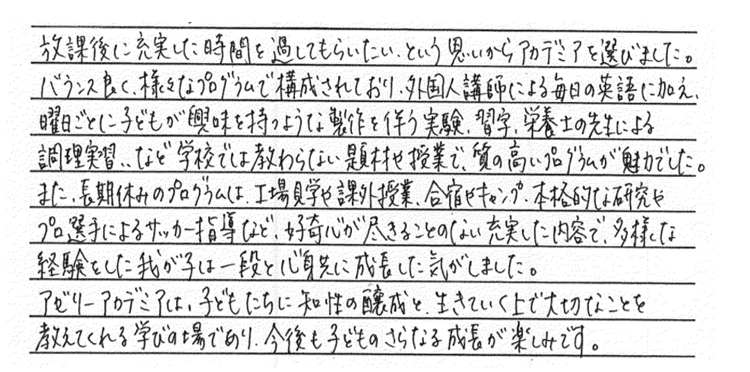 放課後に充実した時間を過してもらいたい、という思いからアカデミアを選びました。
バランス良く、様々なプログラムで構成されており、外国人講師による毎日の英語に加え、
曜日ごとに子どもが興味を持つような製作を伴う実験、習字、栄養士の先生による
調理実習、、など学校では教わらない題材や授業で、質の高いプログラムが魅力でした。
また、長期休みのプログラムは、工場見学や課外授業、合宿やキャンプ、本格的な研究や
プロ選手によるサッカー指導など、好奇心が尽きることのない充実した内容で、多様な
経験をした我が子は一段と心身共に成長した気がしました。
アゼリーアカデミアは、子どもたちに知性の醸成と、生きていく上で大切なことを
教えてくれる学びの場であり、今後も子どものさらなる成長が楽しみです。